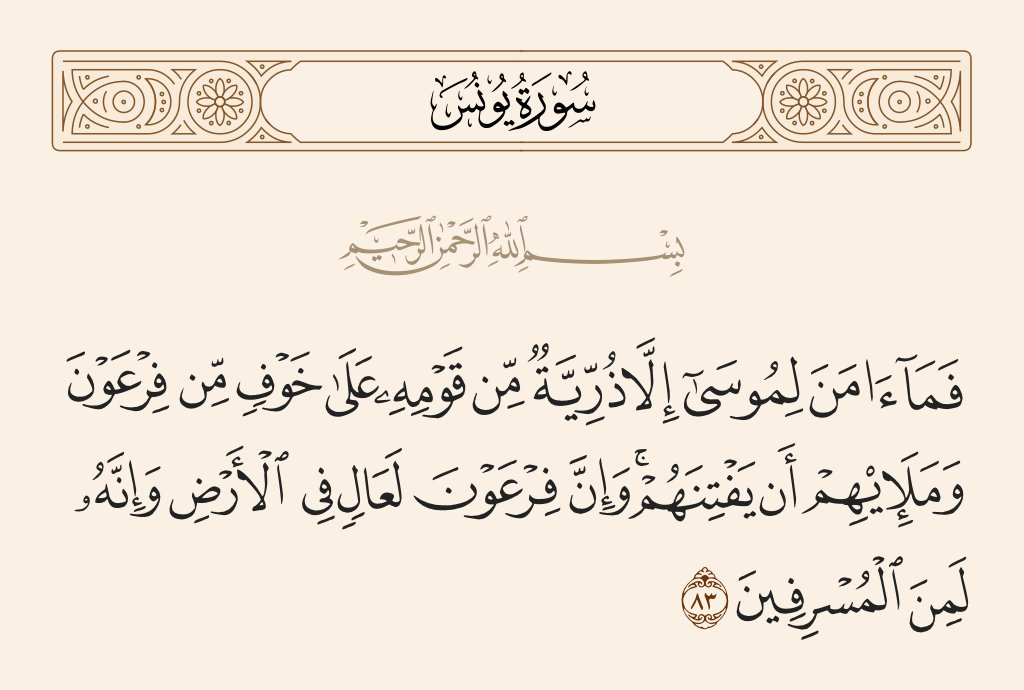 سُورَةُ يُونُسَ
بِسْمِ ٱللَّهِ ٱلرَّحْمَٰنِ ٱلرَّحِيمِ
فَمَآ ءَامَنَ لِمُوسَىٰٓ إِلَّا ذُرِّيَّةٌ مِّن قَوْمِهِۦ عَلَىٰ خَوْفٍ مِّن فِرْعَوْنَ
وَمَلَإِيْهِمْ أَن يَفْتِنَهُمْ ۚ وَإِنَّ فِرْعَوْنَ لَعَالٍ فِى ٱلْأَرْضِ وَإِنَّهُۥ
لَمِنَ ٱلْمُسْرِفِينَ ٨٣